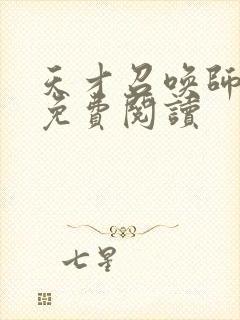 天才召喚師
免費閱讀
七星